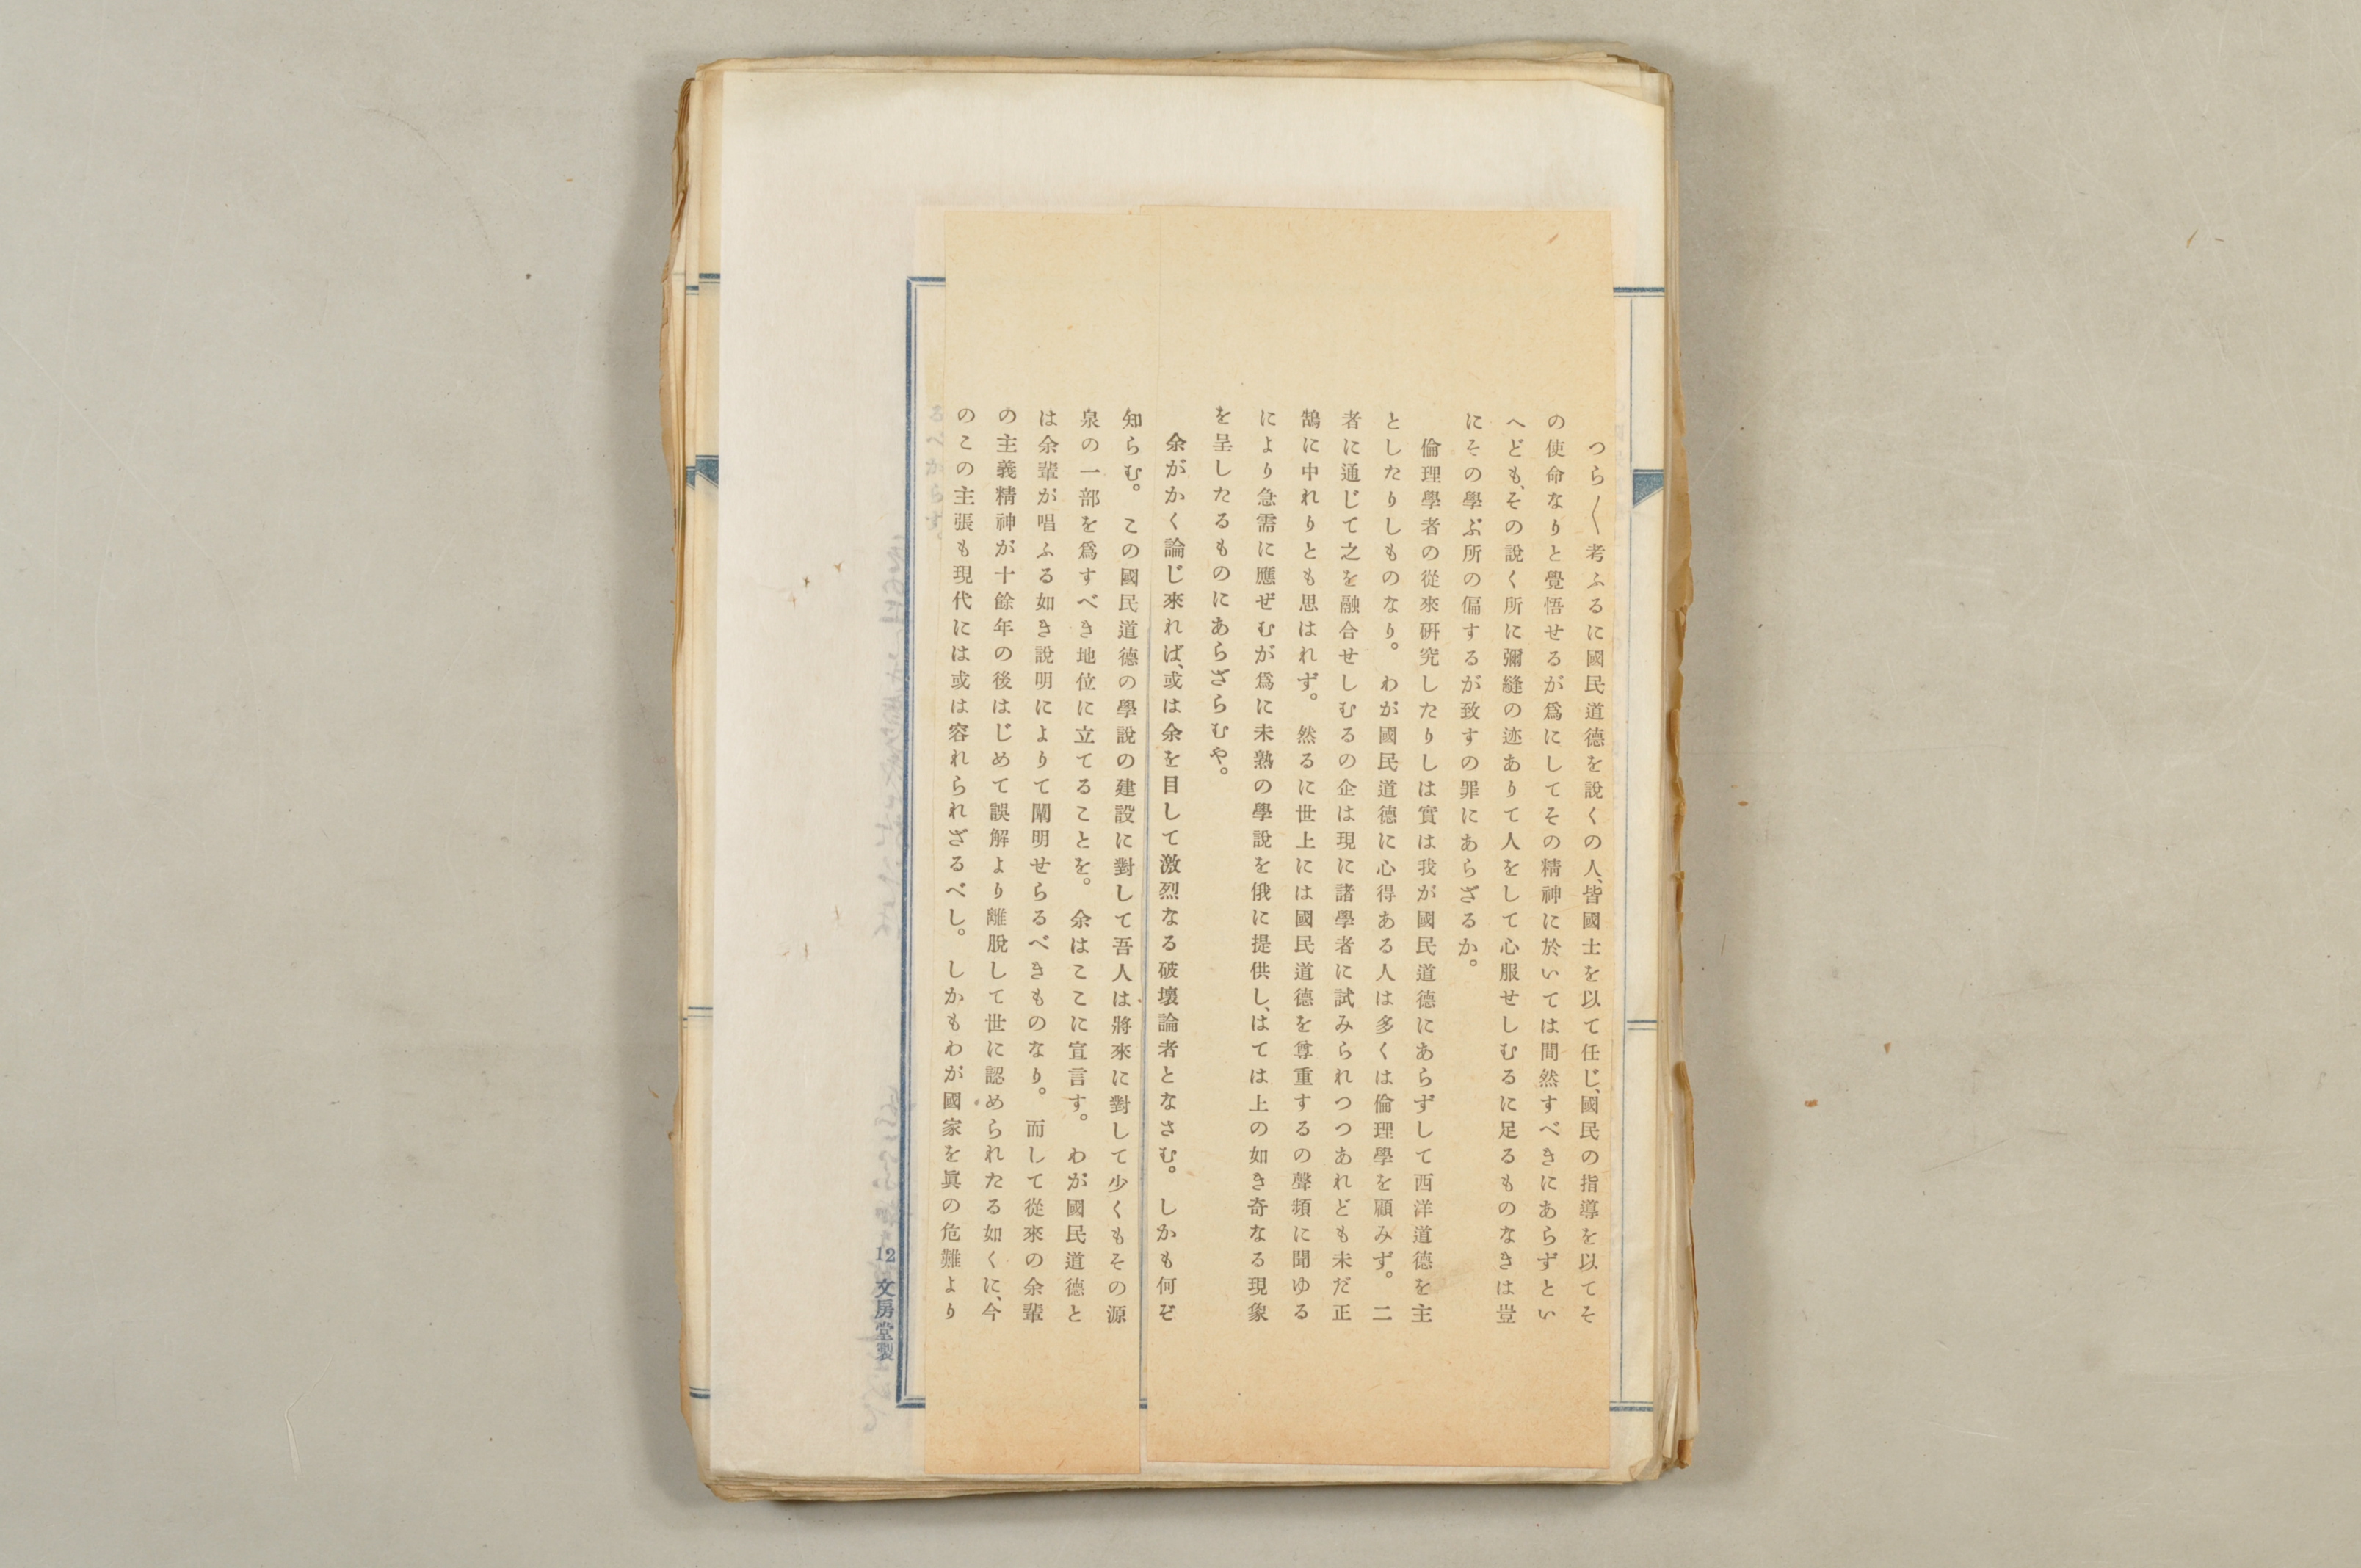 つら〳〵考ふるに國民道德を說くの人、皆國士を以て任じ、國民の指導を以てそ
の使命なりと覺悟せるが爲にしてその精神に於いては間然すべきにあらずとい
へども、その說く所に彌縫の迹ありて人をして心服せしむるに足るものなきは豈
にその學ぶ所の偏するが致すの罪にあらざるか。
倫理學者の從來硏究したりしは實は我が國民道德にあらずして西洋道德を主
としたりしものなり。わが國民道德に心得ある人は多くは倫理學を顧みず。二
者に通じて之を融合せしむるの企は現に諸學者に試みられつつあれども未だ正
鵠に中れりとも思はれず。然るに世上には國民道德を尊重するの聲頻に聞ゆる
により急需に應ぜむが爲に未熟の學說を俄に提供し、はては上の如き奇なる現象
を呈したるものにあらざらむや。
余がかく論じ來れば、或は余を目して激烈なる破壞論者となさむ。しかも何ぞ
知らむ。この國民道德の學說の建設に對して吾人は將來に對して少くもその源
泉の一部を爲すべき地位に立てることを。余はここに宣言す。わが國民道德と
は余輩が唱ふる如き說明によりて闡明せらるべきものなり。而して從來の余輩
の主義精神が十餘年の後はじめて誤解より離脫して世に認められたる如くに、今
のこの主張も現代には或は容れられざるべし。しかもわが國家を眞の危難より
るべからず。
12 文房堂製